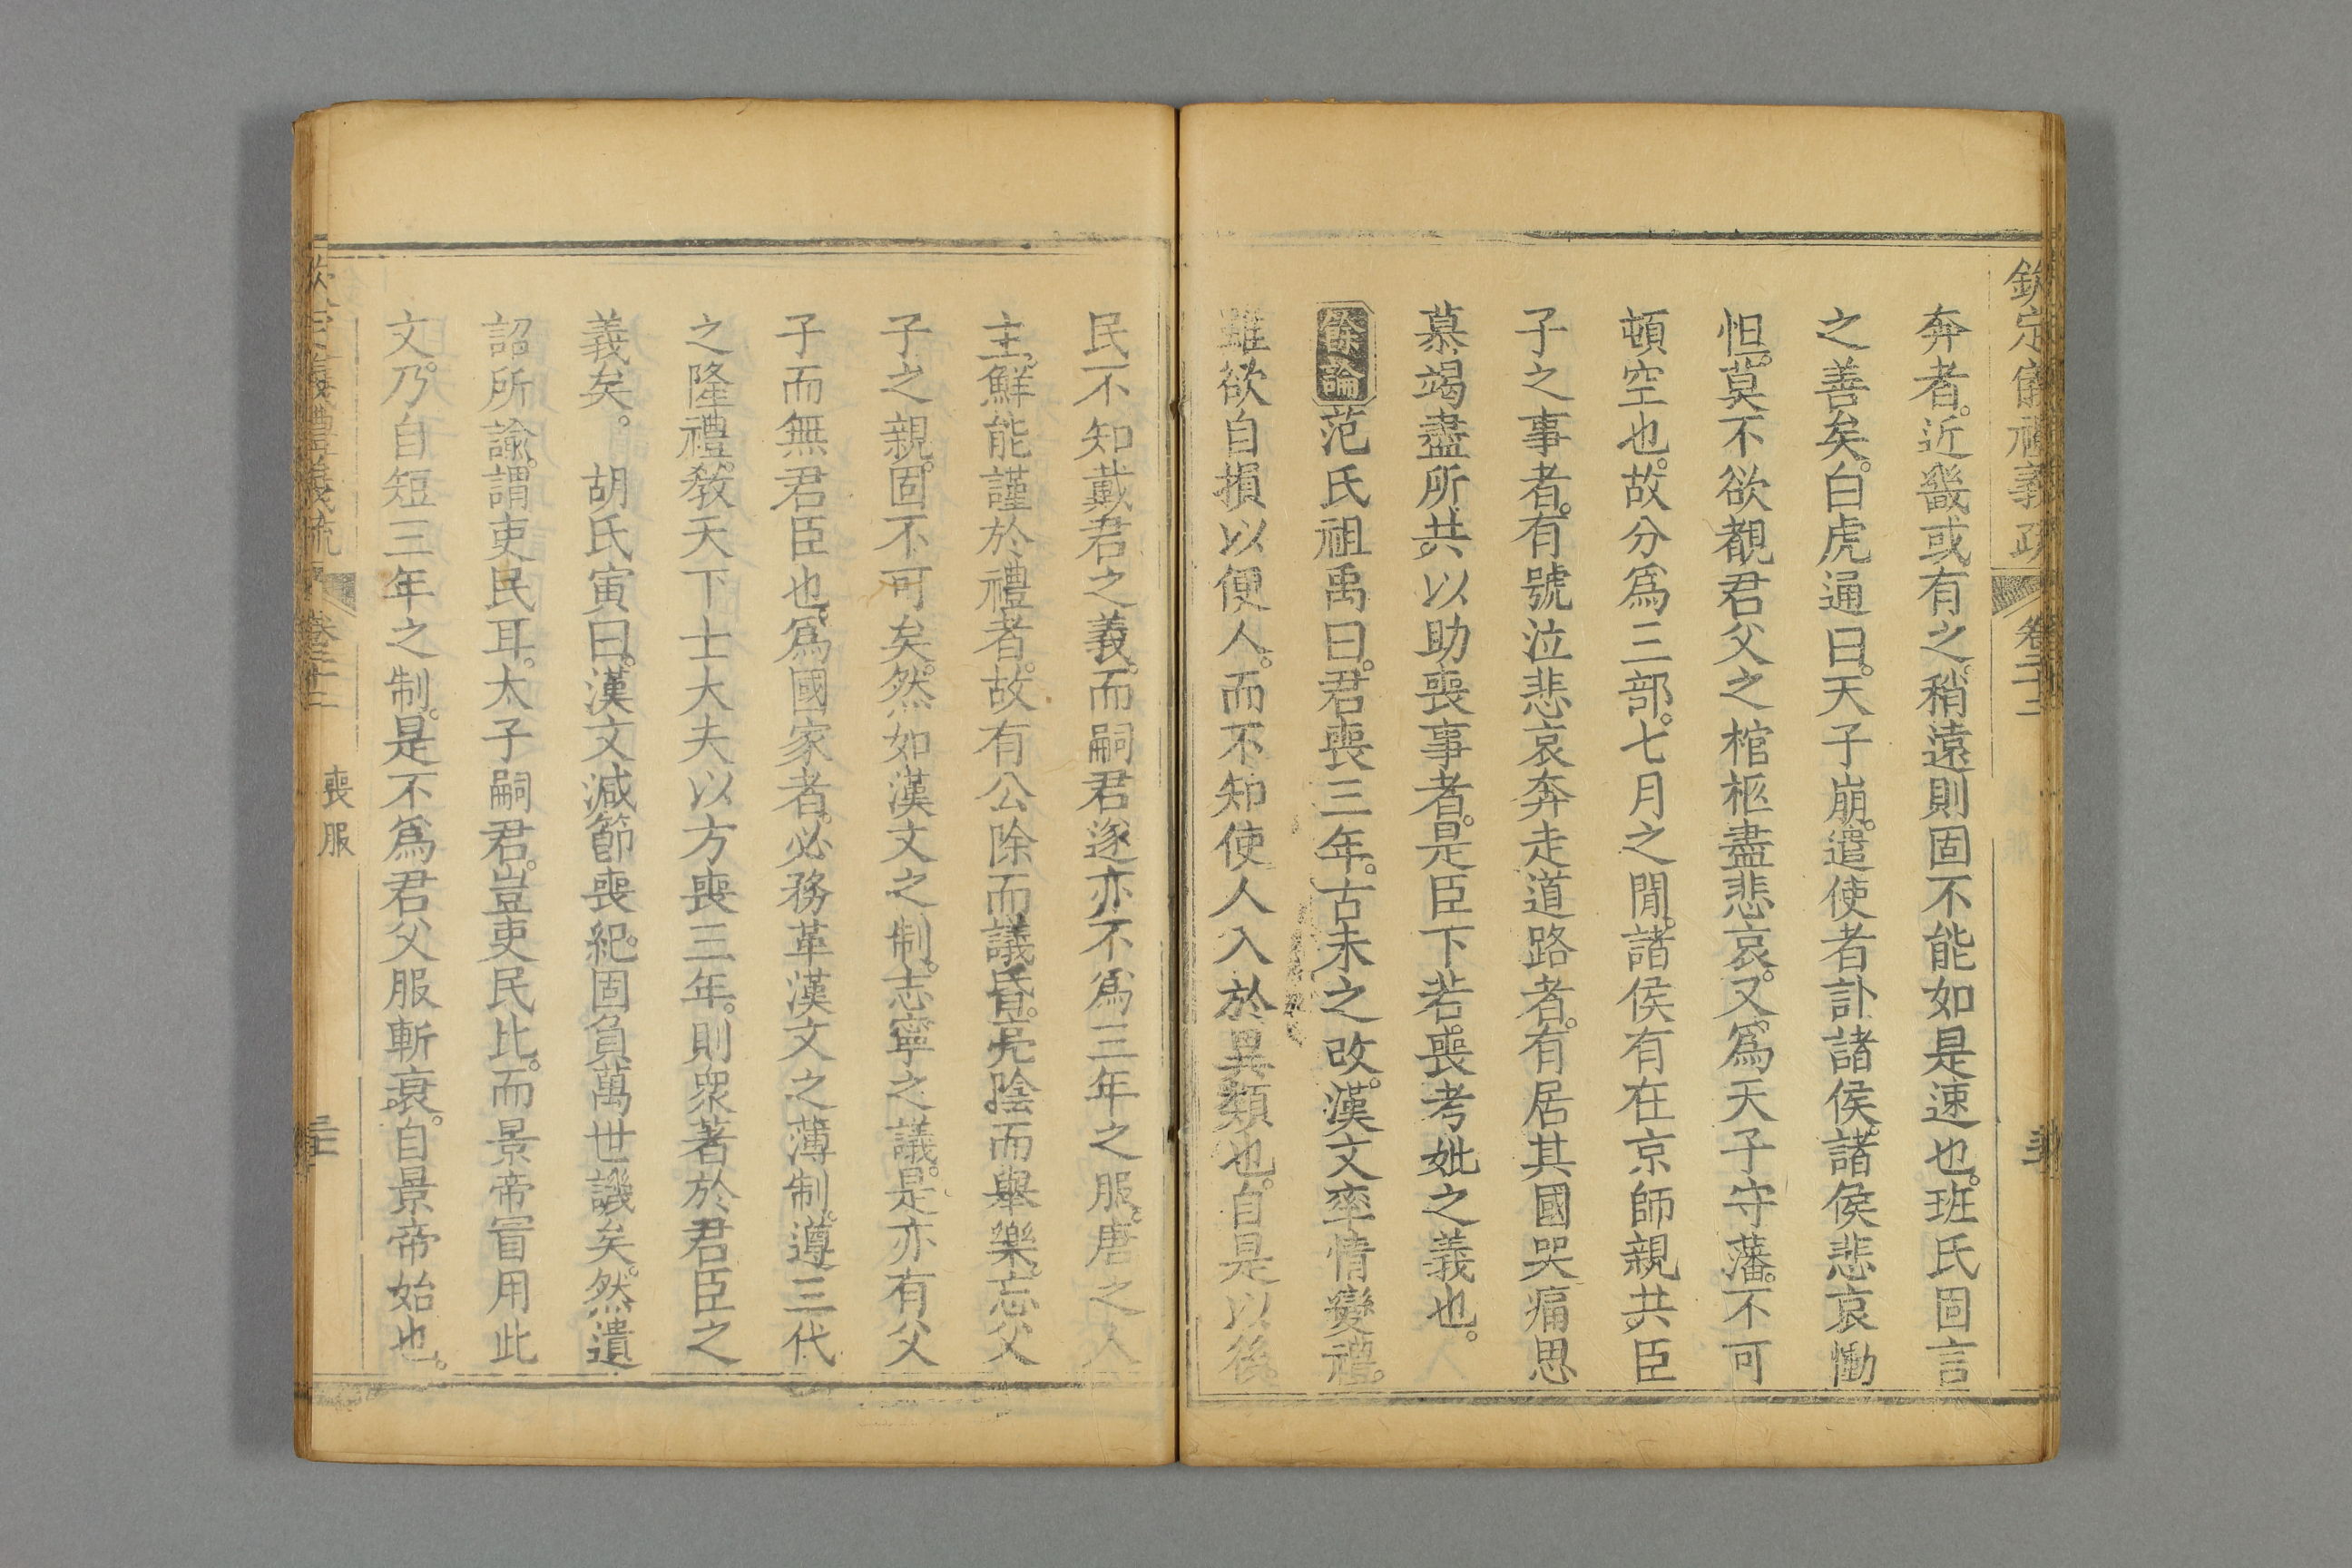 欽定儀禮義疏 卷二十二
奔者。近畿或有之。稍遠則固不能如是速也。班氏固言
之善矣。白虎通曰。天子崩。遣使者訃諸侯。諸侯悲哀慟
怛。莫不欲覩君父之棺柩盡悲哀。又爲天子守藩。不可
頓空也。故分爲三部。七月之閒。諸侯有在京師親共臣
子之事者。有號泣悲哀奔走道路者。有居其國哭痛思
慕竭盡所共以助喪事者。是臣下若喪考妣之義也。
餘論范氏祖禹曰。君喪三年。古未之改。漢文率情變禮。
雖欲自損以便人。而不知使人入於異類也。自是以後
民不知戴君之義。而嗣君遂亦不爲三年之服。唐之人
主。鮮能謹於禮者。故有公除而議昏。亮陰而舉樂。忘父
子之親。固不可矣。然如漢文之制。志寧之議。是亦有父
子而無君臣也。爲國家者。必務革漢文之薄制。遵三代
之隆禮。敎天下士大夫以方喪三年。則衆著於君臣之
義矣。 胡氏寅曰。漢文減節喪紀。固負萬世譏矣。然遺
詔所諭。謂吏民耳。太子嗣君。豈吏民比。而景帝冒用此
文。乃自短三年之制。是不爲君父服斬衰。自景帝始也。
欽定儀禮義疏 卷二十二 喪服